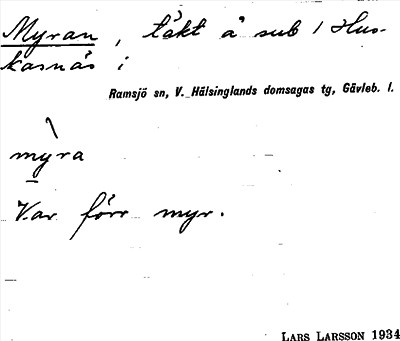 Myran, täkt å sub 1 Hus-
kasnäs i
Ramsjö sn, V. Hälsinglands domsagas tg, Gävleb. l.
my̱ra
Var förr myr.
LARS LARSSON 1934